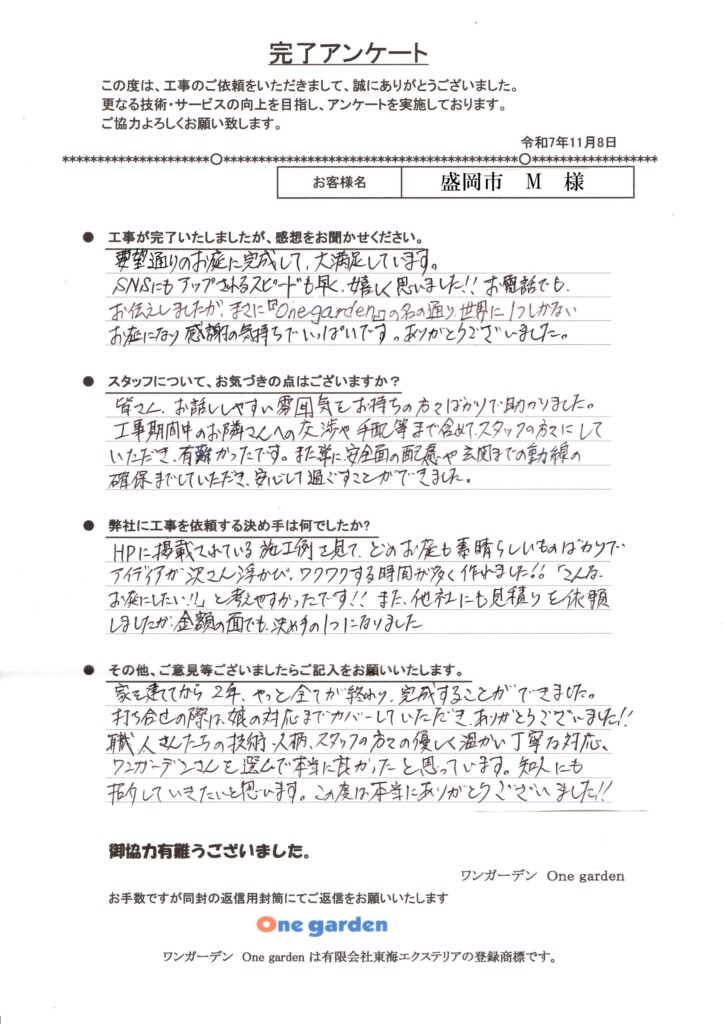 完了アンケート
この度は、工事のご依頼をいただきまして、誠にありがとうございました。
更なる技術・サービスの向上を目指し、アンケートを実施しております。
ご協力よろしくお願い致します。
令和7年11月8日
お客様名 盛岡市 M 様
● 工事が完了いたしましたが、感想をお聞かせください。
要望通りのお庭に完成して、大満足しています。
SNSにもアップされるスピードも早く、嬉しく思いました!! お電話でも、
お伝えしましたが、まさに『One garden』の名の通り、世界に1つしかない
お庭になり感謝の気持ちでいっぱいです。ありがとうございました。
● スタッフについて、お気づきの点はございますか?
皆さん、お話ししやすい雰囲気をお持ちの方々ばかりで助かりました。
工事期間中のお隣さんへの交渉や手配等まで含めて、スタッフの方々にして
いただき、有難かったです。また常に安全面の配慮や玄関までの動線の
確保までしていただき、安心して過ごすことができました。
● 弊社に工事を依頼する決め手は何でしたか?
HPに掲載されている施工例を見て、どのお庭も素晴らしいものばかりで
アイディアが沢さん浮かび、ワクワクする時間が多く作れました!!「こんな
お庭にしたい!!」と考えやすかったです!! また、他社にも見積りを依頼
しましたが、金額の面でも、決め手の1つになりました
● その他、ご意見等ございましたらご記入をお願いいたします。
家を建ててから2年、やっと全てが終わり、完成することができました。
打ち合せの際は、娘の対応までカバーしていただき、ありがとうございました!!
職人さんたちの技術・人柄、スタッフの方々の優しく温かい丁寧な対応、
ワンガーデンさんを選んで本当に良かったと思っています。知人にも
紹介していきたいと思います。この度は本当にありがとうございました!!
御協力有難うございました。
ワンガーデン One garden
お手数ですが同封の返信用封筒にてご返信をお願いいたします
One garden
ワンガーデン One garden は有限会社東海エクステリアの登録商標です。